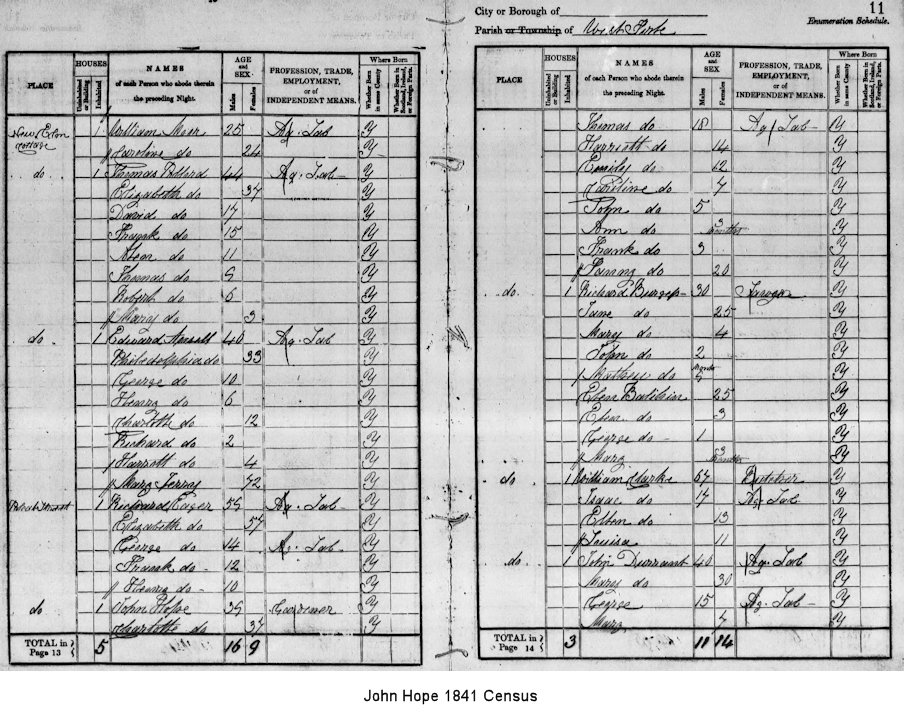 11
City or Borough of
Enumeration Schedule.
Parish or Township of
PLACE
HOUSES
Uninhabited or Building
Inhabited
NAMES
of each Person who abode therein
the preceding Night.
AGE and SEX
Males
Females
PROFESSION, TRADE,
EMPLOYMENT,
or of
INDEPENDENT MEANS.
Where Born
Whether Born in same County
Whether Born in Scotland, Ireland, or Foreign Parts.
1 William 25 Ag. Lab Y
Caroline do 24 Y
do 1 Thomas 44 Ag. Lab Y
Elizabeth do 37 Y
David do 17 Y
Frank do 15 Y
do 11 Y
Thomas do Y
Robert do 6 Y
Mary do 3 Y
do 1 Edward 40 Ag. Lab Y
Philadelphia do 33 Y
George do 10 Y
Henry do 6 Y
Charlotte do 12 Y
Richard do 2 Y
Harriott do 4 Y
Mary 72 Y
1 Richard Eager Ag. Lab Y
Elizabeth do 57 Y
George do 14 Ag. Lab Y
Frank do 12 Y
Henry do 10 Y
do 1 John Hope Gardener Y
Charlotte do 37 Y
TOTAL in Page 13 5 16 9
PLACE
HOUSES
Uninhabited or Building
Inhabited
NAMES
of each Person who abode therein
the preceding Night.
AGE and SEX
Males
Females
PROFESSION, TRADE,
EMPLOYMENT,
or of
INDEPENDENT MEANS.
Where Born
Whether Born in same County
Whether Born in Scotland, Ireland, or Foreign Parts.
Thomas do 18 Ag Lab Y
Harriott do 14 Y
Emily do 12 Y
Caroline do 7 Y
John do 5 Y
Ann do 3 months Y
Frank do 3 Y
Fanny do 20 Y
do 1 Richard Burgess 30 Y
Jane do 25 Y
Mary do 4 Y
John do 2 Y
do 5 Y
25 Y
Ellen do 3 Y
George do 1 Y
Mary 3 months Y
do 1 William Clarke 67 Butcher Y
Isaac do 17 Ag Lab Y
Ellen do 13 Y
Louisa 11 Y
do 1 John Durrant 40 Ag. Lab Y
Mary do 30 Y
George 15 Ag. Lab Y
Mary 7 Y
TOTAL in Page 14 3 11 14
John Hope 1841 Census